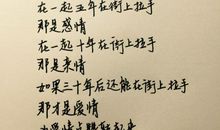 在一起五年在街上拉手
那是感情
在一起十年在街上拉手
那是亲情
如果三十年后还能在街上拉手
那才是爱情